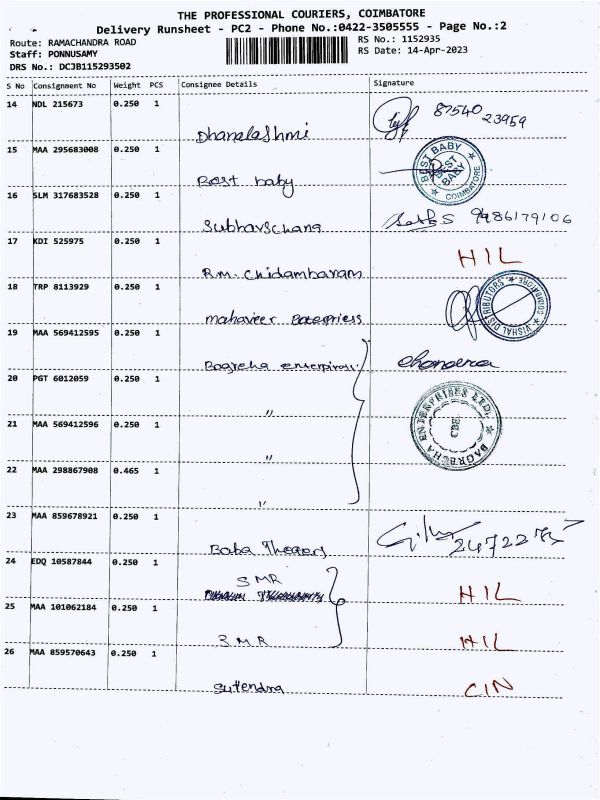 THE PROFESSIONAL COURIERS, COIMBATORE
Delivery Runsheet - PC2 - Phone No.:0422-3505555 - Page No.:2
Route: RAMACHANDRA ROAD
RS No.: 1152935
Staff: PONNUSAMY
RS Date: 14-Apr-2023
DRS No.: DCJB115293502
S No Consignment No Weight PCS Consignee Details Signature
14 NDL 215673 0.250 1
87540
23959
Dhanalashmi
15 MAA 295683008 0.250 1
BEST BABY
BEST BABY
COIMBATORE
Best baby
16 SLM 317683528 0.250 1
9486179106
17 KDI 525975 0.250 1
HIL
R.M. Chidambaram
18 TRP 8113929 0.250 1
VISHAL DISTRIBUTORS
COIMBATORE
mahaveer
19 MAA 569412595 0.250 1
20 PGT 6012059 0.250 1
BAGRECHA ENTERPRISES LTD.
CBE
"
21 MAA 569412596 0.250 1
"
22 MAA 298867908 0.465 1
"
23 MAA 859678921 0.250 1
Baba
24 EDQ 10587844 0.250 1
SMR
HIL
25 MAA 101062184 0.250 1
SMR
HIL
26 MAA 859570643 0.250 1
Sutendra
CIN